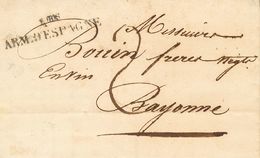 ARM. D'ESPAGNE
Messieurs
Bouin freres Negts
En vin
Bayonne